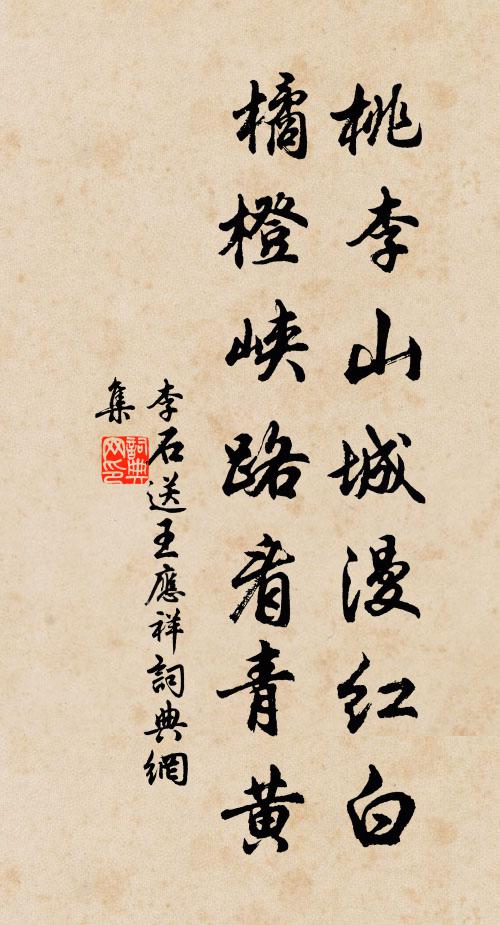 桃李山城漫红白
橘橙峡路看青黄
李石送王應祥詞典網
集
詞典
网印